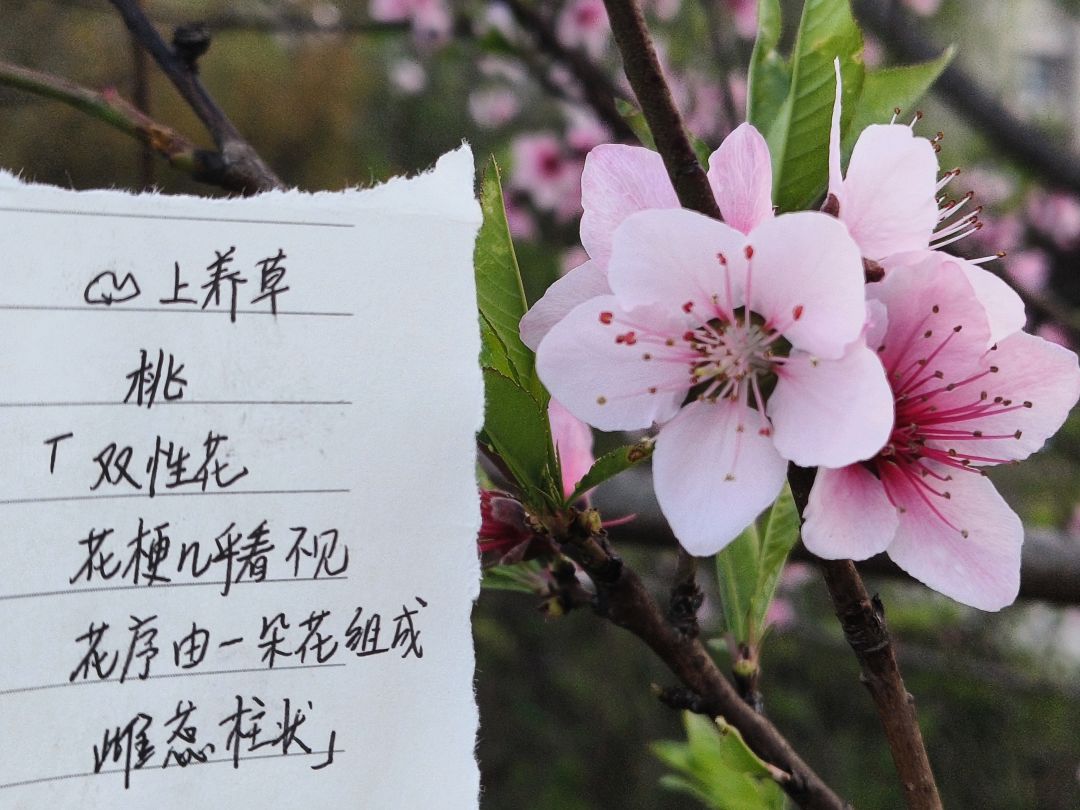 上养草
桃
「双性花
花梗几乎看不见
花序由一朵花组成
雌蕊柱状」